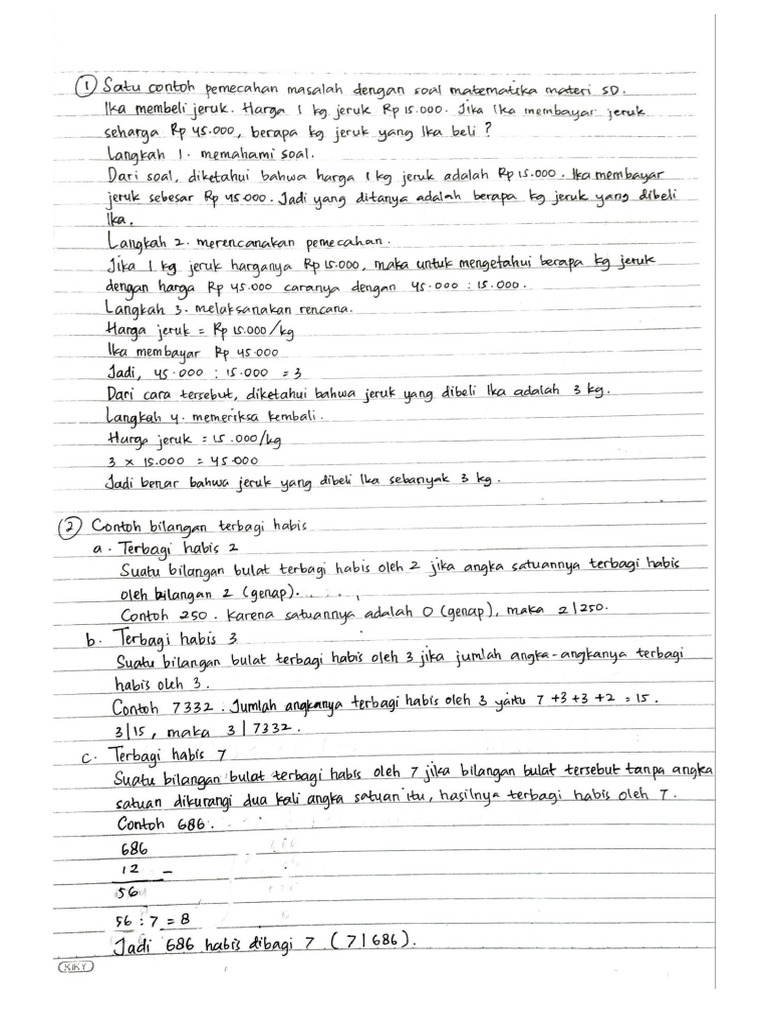 ① Satu contoh pemecahan masalah dengan soal matematika materi SD.
Ika membeli jeruk. Harga 1 kg jeruk Rp 15.000. Jika Ika membayar jeruk
seharga Rp 45.000, berapa kg jeruk yang Ika beli ?
Langkah 1. memahami soal.
Dari soal, diketahui bahwa harga 1 kg jeruk adalah Rp 15.000. Ika membayar
jeruk sebesar Rp 45.000. Jadi yang ditanya adalah berapa kg jeruk yang dibeli
Ika.
Langkah 2. merencanakan pemecahan.
Jika 1 kg jeruk harganya Rp 15.000, maka untuk mengetahui berapa kg jeruk
dengan harga Rp 45.000 caranya dengan 45.000 : 15.000.
Langkah 3. melaksanakan rencana.
Harga jeruk = Rp 15.000/kg
Ika membayar Rp 45.000
Jadi, 45.000 : 15.000 = 3
Dari cara tersebut, diketahui bahwa jeruk yang dibeli Ika adalah 3 kg.
Langkah 4. memeriksa kembali.
Harga jeruk = 15.000/kg
3 x 15.000 = 45.000
Jadi benar bahwa jeruk yang dibeli Ika sebanyak 3 kg.
② Contoh bilangan terbagi habis
a. Terbagi habis 2
Suatu bilangan bulat terbagi habis oleh 2 jika angka satuannya terbagi habis
oleh bilangan 2 (genap).
Contoh 250. Karena satuannya adalah 0 (genap), maka 2|250.
b. Terbagi habis 3
Suatu bilangan bulat terbagi habis oleh 3 jika jumlah angka-angkanya terbagi
habis oleh 3.
Contoh 7332. Jumlah angkanya terbagi habis oleh 3 yaitu 7+3+3+2 = 15.
3|15, maka 3|7332.
c. Terbagi habis 7
Suatu bilangan bulat terbagi habis oleh 7 jika bilangan bulat tersebut tanpa angka
satuan dikurangi dua kali angka satuan itu, hasilnya terbagi habis oleh 7.
Contoh 686.
686
12 –
56
56 : 7 = 8
Jadi 686 habis dibagi 7 (7|686).
KIKY